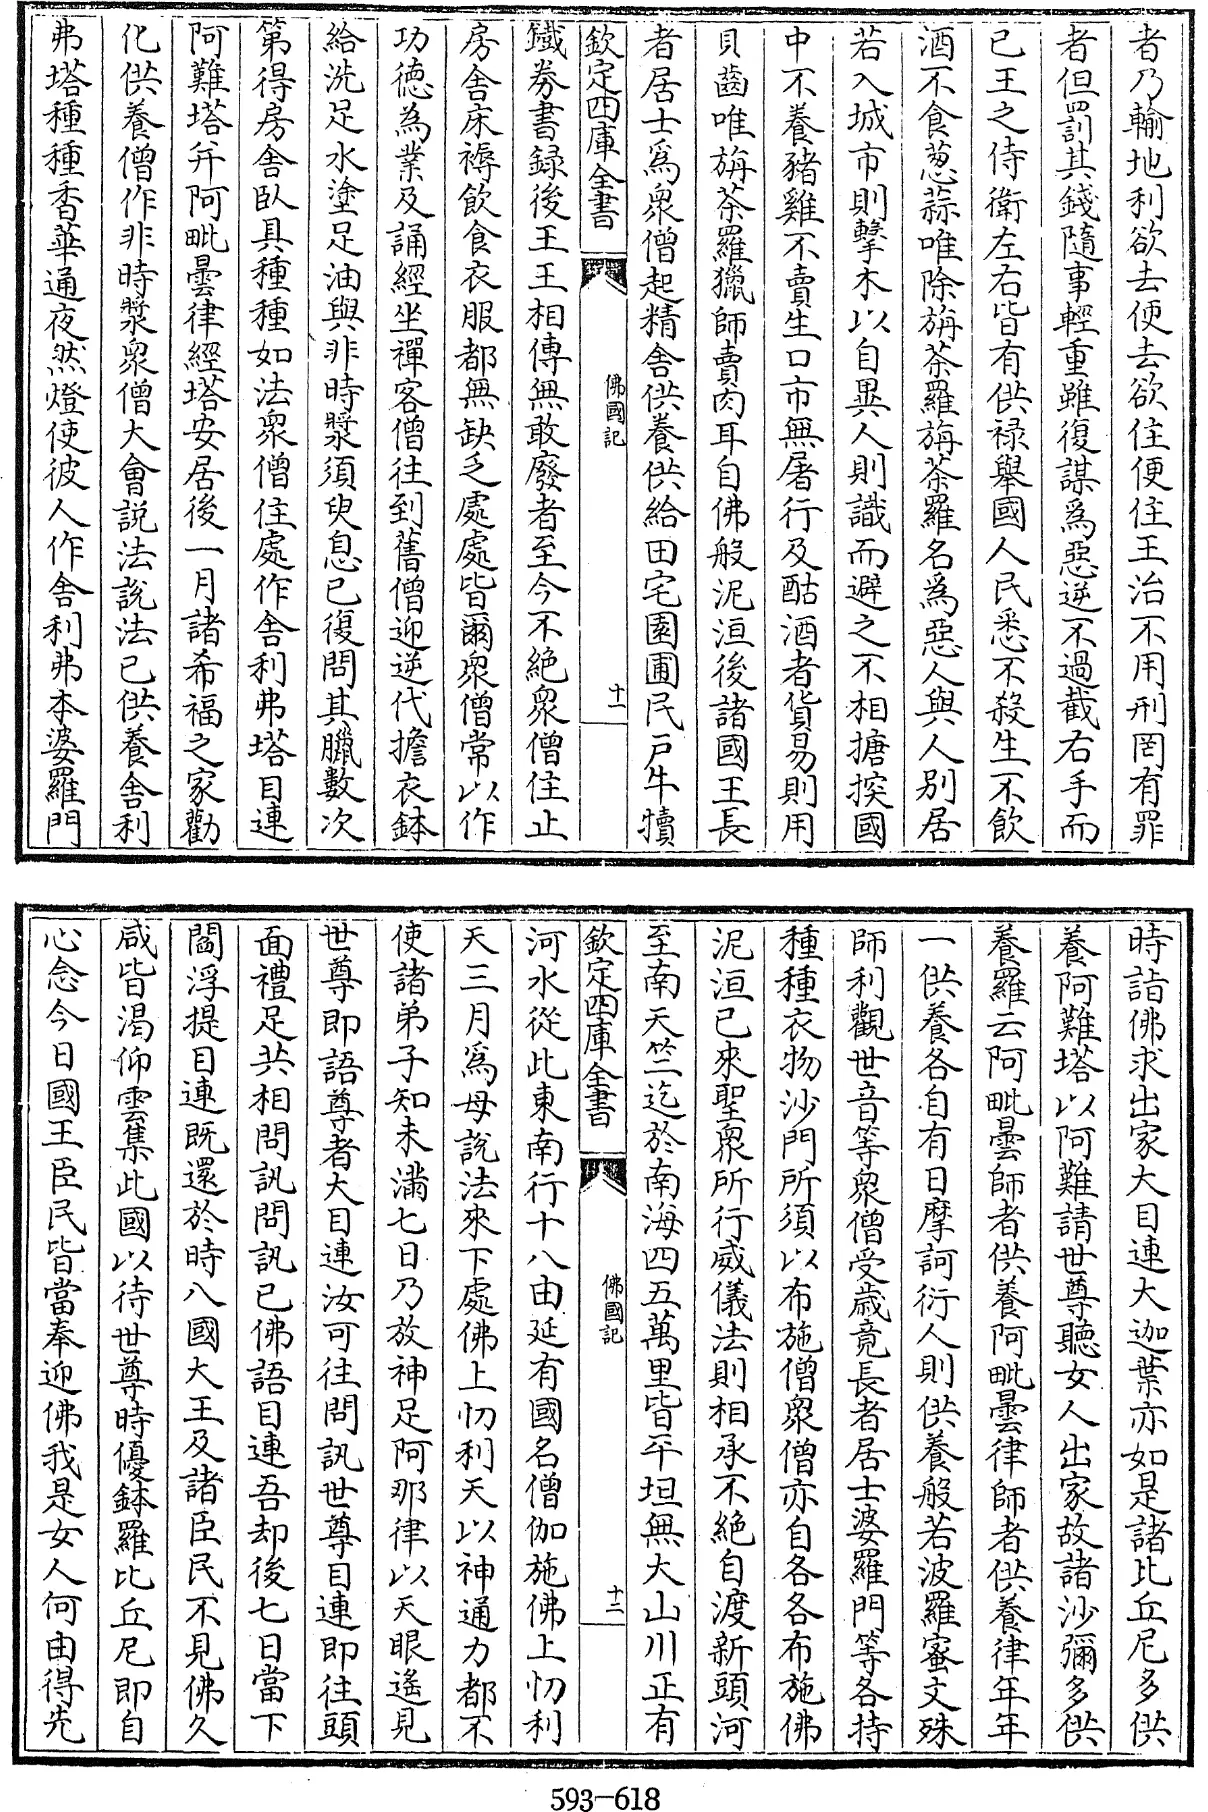 者乃輸地利欲去便去欲住便住王治不用刑罔有罪
者但罰其錢隨事輕重雖復謀爲惡逆不過截右手而
已王之侍衛左右皆有供禄舉國人民悉不殺生不飲
酒不食葱蒜唯除旃荼羅旃荼羅名爲惡人與人別居
若入城市則擊木以自異人則識而避之不相搪揬國
中不養豬雞不賣生口市無屠行及酤酒者貨易則用
貝齒唯旃荼羅獵師賣肉耳自佛般泥洹後諸國王長
者居士爲衆僧起精舍供養供給田宅園圃民戸牛犢
欽定四庫全書
佛國記
十一
鐵券書録後王王相傳無敢廢者至今不絶衆僧住止
房舍床褥飲食衣服都無缺乏處處皆爾衆僧常以作
功徳為業及誦經坐禪客僧往到舊僧迎逆代擔衣鉢
給洗足水塗足油與非時漿須臾息已復問其臘數次
第得房舍臥具種種如法衆僧住處作舍利弗塔目連
阿難塔并阿毗曇律經塔安居後一月諸希福之家勸
化供養僧作非時漿衆僧大會説法説法已供養舍利
弗塔種種香華通夜然燈使彼人作舍利弗本婆羅門
時詣佛求出家大目連大迦葉亦如是諸比丘尼多供
養阿難塔以阿難請世尊聽女人出家故諸沙彌多供
養羅云阿毗曇師者供養阿毗曇律師者供養律年年
一供養各自有日摩訶衍人則供養般若波羅蜜文殊
師利觀世音等衆僧受歳竟長者居士婆羅門等各持
種種衣物沙門所須以布施僧衆僧亦自各各布施佛
泥洹已來聖衆所行威儀法則相承不絶自渡新頭河
至南天竺迄於南海四五萬里皆平坦無大山川正有
欽定四庫全書
佛國記
十二
河水從此東南行十八由延有國名僧伽施佛上忉利
天三月爲母説法來下處佛上忉利天以神通力都不
使諸弟子知未滿七日乃放神足阿那律以天眼遙見
世尊即語尊者大目連汝可往問訊世尊目連即往頭
面禮足共相問訊問訊已佛語目連吾却後七日當下
閻浮提目連既還於時八國大王及諸臣民不見佛久
咸皆渴仰雲集此國以待世尊時優鉢羅比丘尼即自
心念今日國王臣民皆當奉迎佛我是女人何由得先
593-618